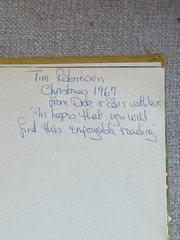 Tim Robinson
Christmas 1967
from Dick & Edis with love
"In hopes that you will
find this enjoyable reading"